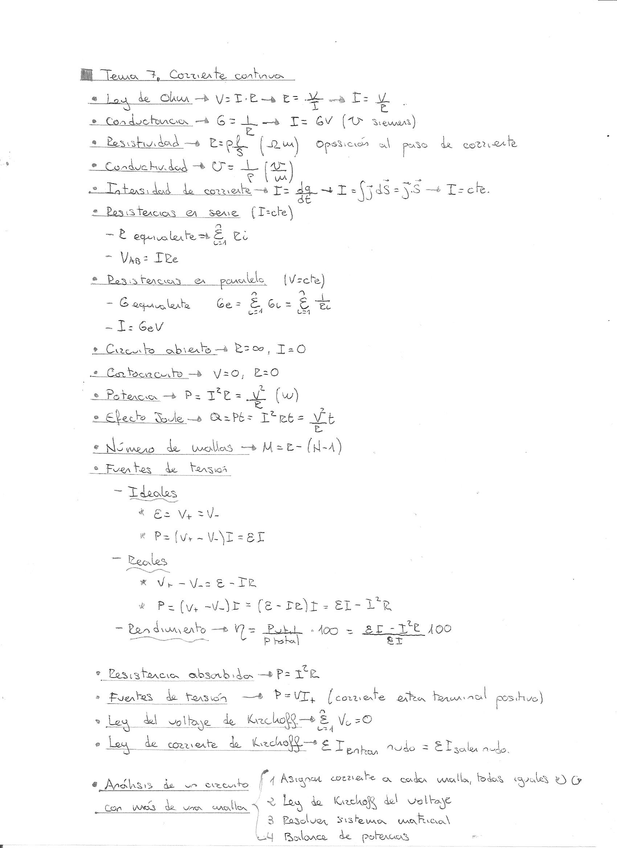 Tema 7, Corriente continua
• Ley de Ohm → V = I·R → R = V/I → I = V/R
• Conductancia → G = 1/R → I = GV (℧ siemens)
• Resistividad → R = ρ l/S (Ωm) Oposición al paso de corriente
• Conductividad → σ = 1/ρ (℧/m)
• Intensidad de corriente → I = dq/dt → I = ∫∫ j⃗ dS⃗ = j⃗·S⃗ → I = cte.
• Resistencias en serie (I=cte)
- R equivalente → Σⁿᵢ₌₁ Ri
- V_AB = IRe
• Resistencias en paralelo (V=cte)
- G equivalente Ge = Σⁿᵢ₌₁ Gi = Σⁿᵢ₌₁ 1/Ri
- I = GeV
• Circuito abierto → R=∞, I=0
• Cortocircuito → V=0, R=0
• Potencia → P = I²R = V²/R (W)
• Efecto Joule → Q = Pt = I²Rt = V²/R t
• Número de mallas → M = R-(N-1)
• Fuentes de tensión
- Ideales
* ε = V₊ = V₋
* P = (V₊ - V₋)I = εI
- Reales
* V₊ - V₋ = ε - IR
* P = (V₊ - V₋)I = (ε - IR)I = εI - I²R
- Rendimiento → η = P útil/P total · 100 = εI - I²R/εI 100
• Resistencia absorbida → P = I²R
• Fuentes de tensión → P = VI₊ (corriente entra terminal positivo)
• Ley del voltaje de Kirchoff → Σⁿᵢ₌₁ Vi = 0
• Ley de corriente de Kirchoff → Σ I entran nudo = Σ I salen nudo.
• Análisis de un circuito con más de una malla
1 Asignar corriente a cada malla, todas iguales ↻ ↺
2 Ley de Kirchoff del voltaje
3 Resolver sistema matricial
4 Balance de potencias